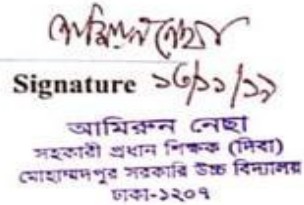 আমিরুন নেছা
Signature ১৩/১১/১৯
আমিরুন নেছা
সহকারী প্রধান শিক্ষক (দিবা)
মোহাম্মদপুর সরকারি উচ্চ বিদ্যালয়
ঢাকা-১২০৭